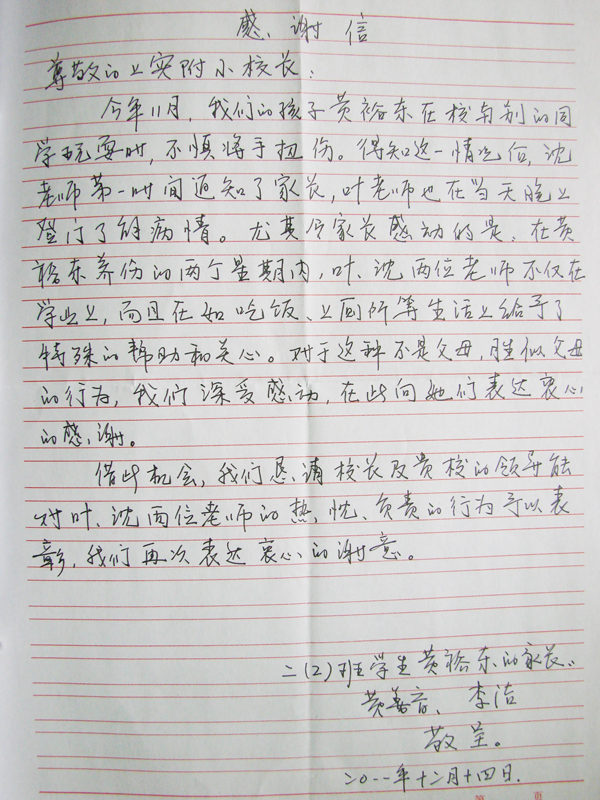 感谢信
尊敬的上实附小校长：
今年11月，我们的孩子黄裕东在校与别的同
学玩耍时，不慎将手扭伤。得知这一情况后，沈
老师第一时间通知了家长，叶老师也在当天晚上
登门了解病情。尤其令家长感动的是，在黄
裕东养伤的两个星期内，叶、沈两位老师不仅在
学业上，而且在如吃饭、上厕所等生活上给予了
特殊的帮助和关心。对于这种不是父母，胜似父母
的行为，我们深受感动，在此向她们表达衷心
的感谢。
借此机会，我们恳请校长及贵校的领导能
对叶、沈两位老师的热忱、负责的行为予以表
彰，我们再次表达衷心的谢意。
二（2）班学生黄裕东的家长：
黄善音、李洁
敬呈。
二〇一一年十二月十四日.
第 页